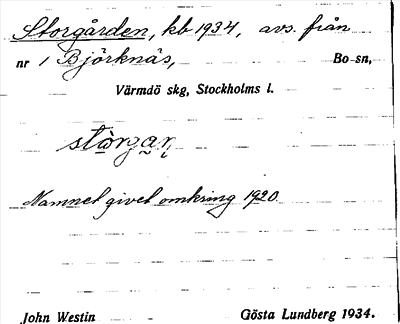 Storgården, kb 1934, avs. från
nr 1 Björknäs, Bo-sn,
Värmdö skg, Stockholms l.
stòrgaṇ
Namnet givet omkring 1920.
John Westin Gösta Lundberg 1934.